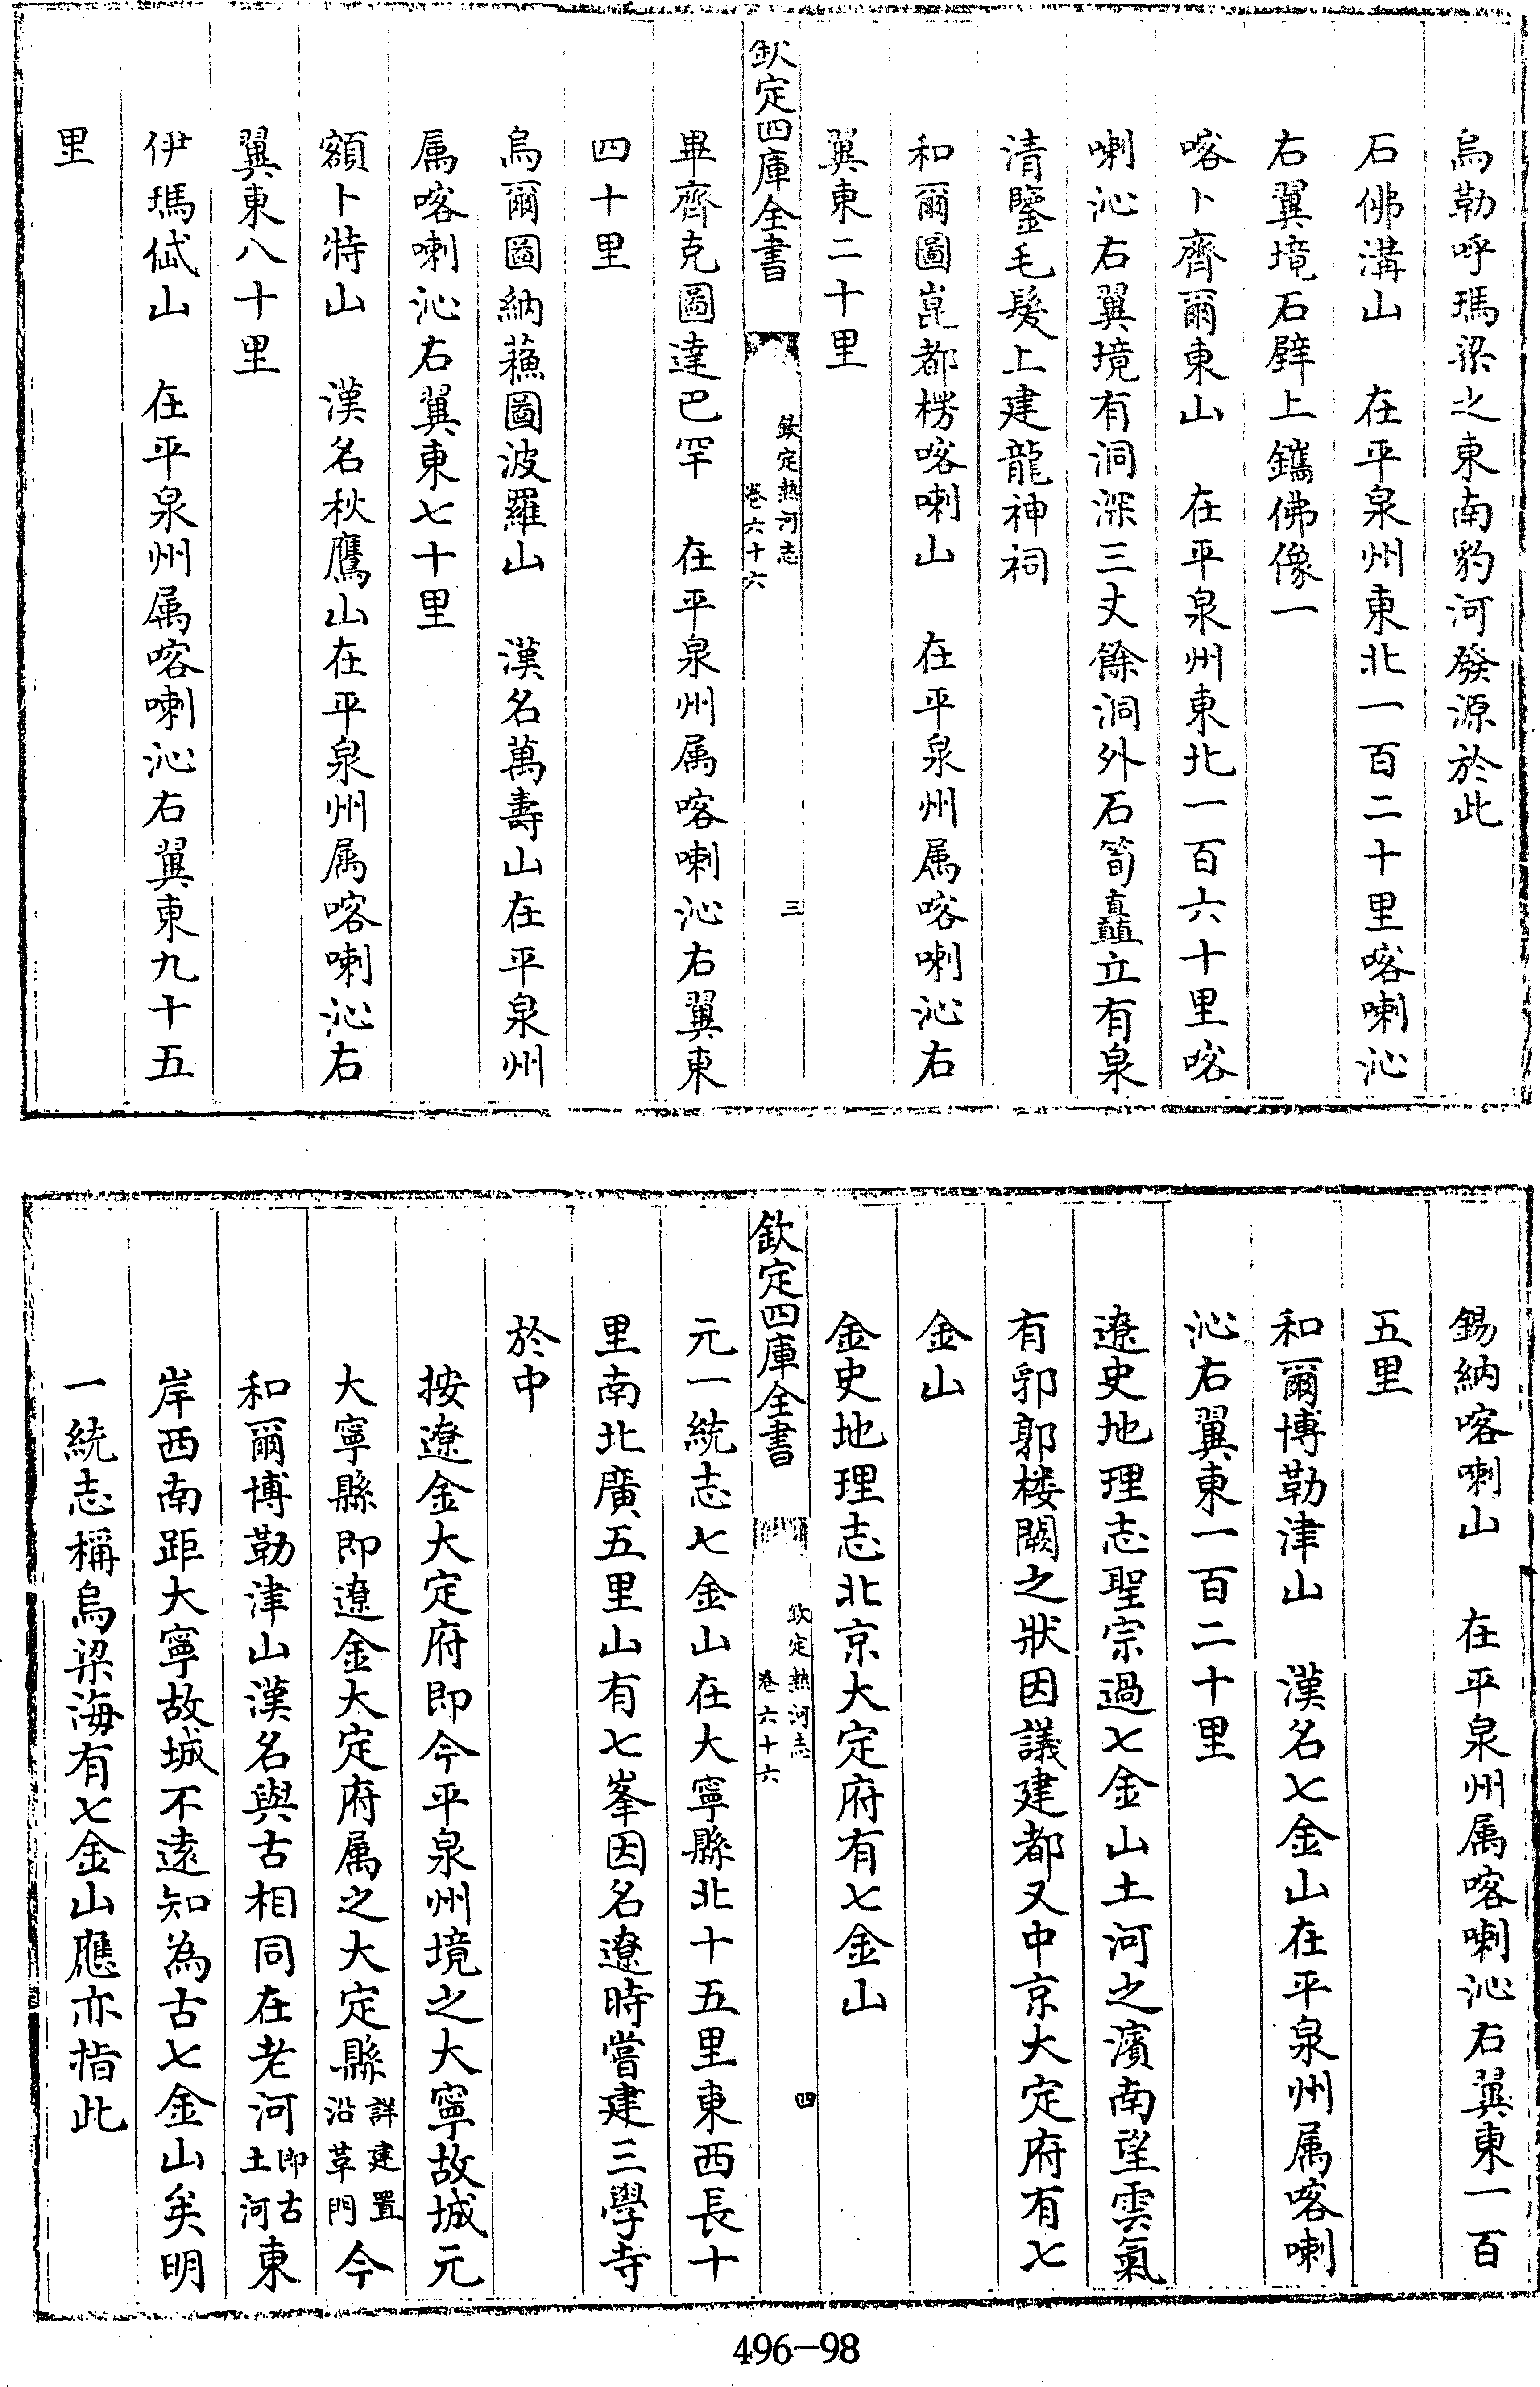 烏勒呼瑪梁之東南豹河發源於此
石佛溝山　在平泉州東北一百二十里喀喇沁
右翼境石壁上鐫佛像一
喀卜齊爾東山　在平泉州東北一百六十里喀
喇沁右翼境有洞深三丈餘洞外石筍矗立有泉
清鑒毛髮上建龍神祠
和爾圖崑都楞喀喇山　在平泉州属喀喇沁右
翼東二十里
欽定四庫全書
欽定熱河志
卷六十六
三
畢齊克圖達巴罕　在平泉州属喀喇沁右翼東
四十里
烏爾圖納蘓圖波羅山　漢名萬壽山在平泉州
属喀喇沁右翼東七十里
額卜特山　漢名秋鷹山在平泉州属喀喇沁右
翼東八十里
伊瑪倀山　在平泉州属喀喇沁右翼東九十五
里
錫納喀喇山　在平泉州属喀喇沁右翼東一百
五里
和爾博勒津山　漢名七金山在平泉州属喀喇
沁右翼東一百二十里
遼史地理志聖宗過七金山土河之濱南望雲氣
有郛郭楼闕之狀因議建都又中京大定府有七
金山
金史地理志北京大定府有七金山
欽定四庫全書
欽定熱河志
卷六十六
四
元一統志七金山在大寧縣北十五里東西長十
里南北廣五里山有七峯因名遼時嘗建三學寺
於中
按遼金大定府即今平泉州境之大寧故城元
大寧縣即遼金大定府属之大定縣詳建置沿革門今
和爾博勒津山漢名與古相同在老河即古土河東
岸西南距大寧故城不遠知為古七金山矣明
一統志稱烏梁海有七金山應亦指此
496-98